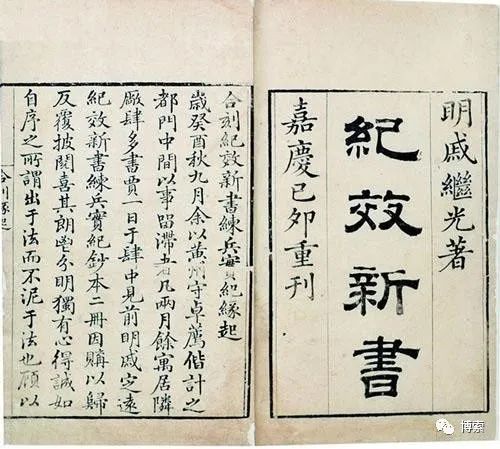 明戚繼光著
紀效新書
嘉慶己卯重刊
合刻紀效新書練兵實紀緣起
歲癸酉秋九月余以黃州守卓薦偕計之
都門中間以事留滯者凡兩月餘寓居隣
廠肆多書賈一日于肆中見前明戚定遠
紀效新書練兵實紀鈔本二冊因購以歸
反覆披閱喜其朗鬯分明獨有心得誠如
自序之所謂出于法而不泥于法也顧以
合刻緣起
博索